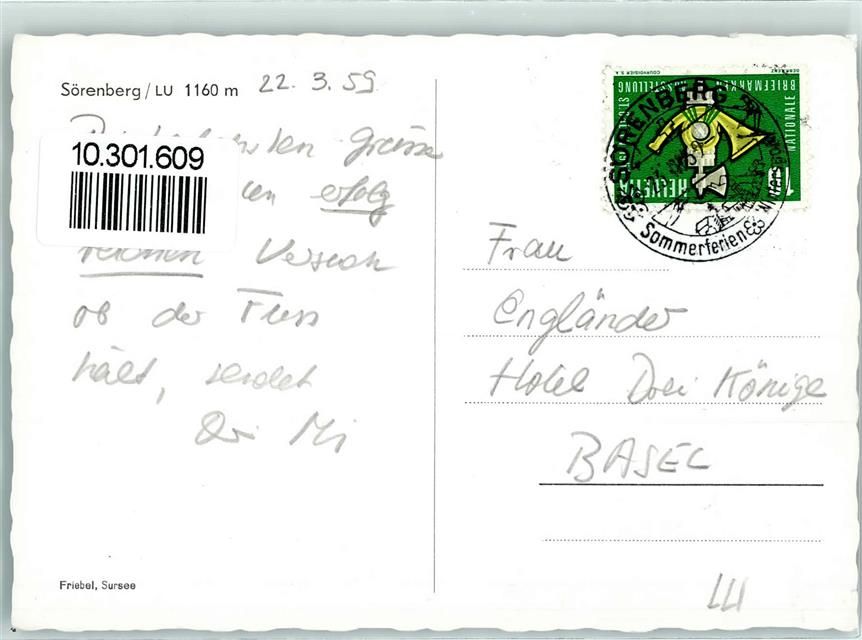 Sörenberg / LU 1160 m 22. 3. 59
10.301.609
Grüsse
erfolg
reichen Versuch
ob der Fuss
hält, sendet
Mi
Friebel, Sursee
NATIONALE
BRIEFMARKEN AUSSTELLUNG
HELVETIA
COURVOISIER S.A.
SÖRENBERG
Sommerferien
Wintersport
Frau
Engländer
Hotel Drei Könige
BASEL
LU